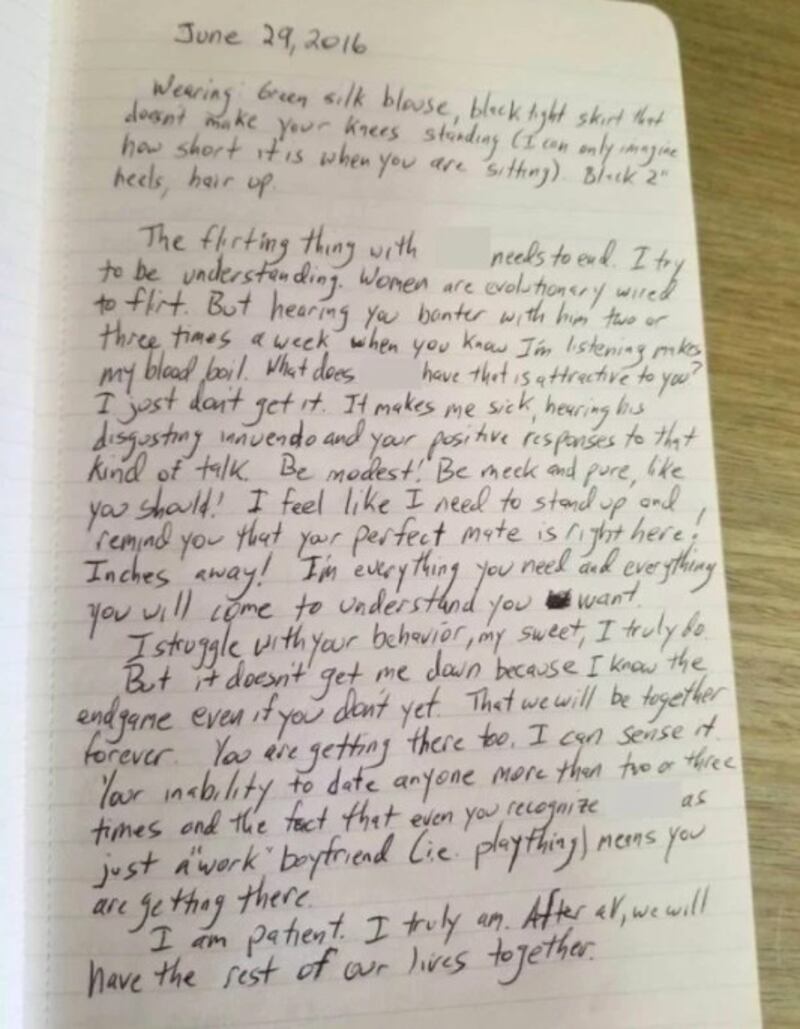 June 29, 2016
Wearing: Green silk blouse, black tight skirt that
doesn't make your knees standing (I can only imagine
how short it is when you are sitting). Black 2"
heels, hair up.
The flirting thing with needs to end. I try
to be understanding. Women are evolutionary wired
to flirt. But hearing you banter with him two or
three times a week when you know I'm listening makes
my blood boil. What does have that is attractive to you?
I just don't get it. It makes me sick, hearing his
disgusting innuendo and your positive responses to that
kind of talk. Be modest! Be meek and pure, like
you should! I feel like I need to stand up and
remind you that your perfect mate is right here!
Inches away! I'm everything you need and everything
you will come to understand you want.
I struggle with your behavior, my sweet, I truly do.
But it doesn't get me down because I know the
endgame even if you don't yet. That we will be together
forever. You are getting there too. I can sense it.
Your inability to date anyone more than two or three
times and the fact that even you recognize as
just a "work" boyfriend (i.e. plaything) means you
are getting there.
I am patient. I truly am. After all, we will
have the rest of our lives together.